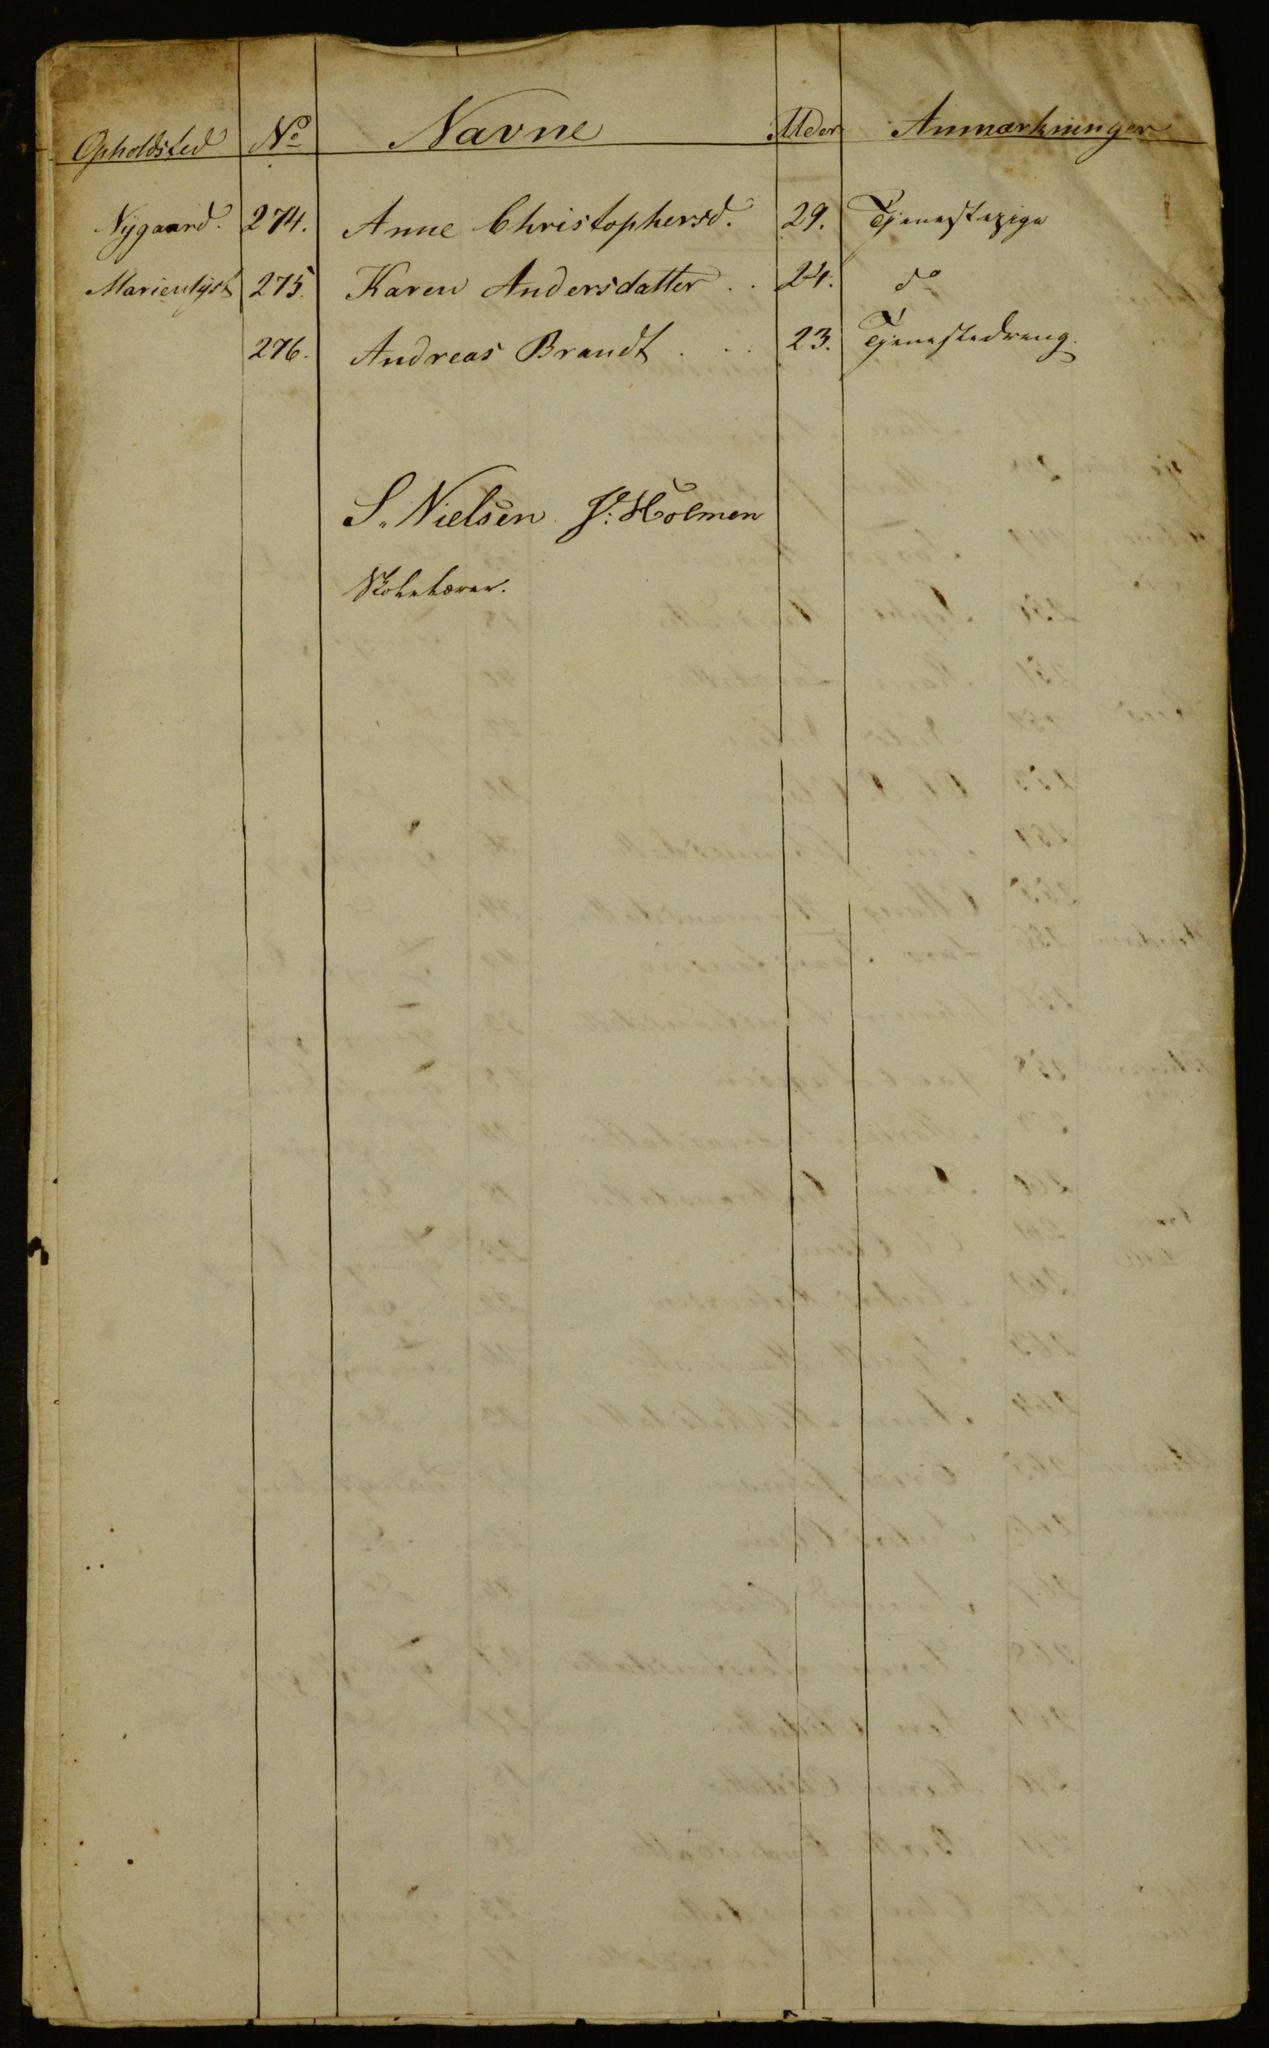 Opholdsted No Navne Alder Anmærkninger
Nÿgaard. 274. Anne Christophersd. 29. Tjenestepige
Marienlÿst 275. Karen Andersdatter . . 24. do
276. Andreas Brandt . . . 23. Tjenestedreng.
S. Nielsen J: Holmen
Skolelærer.